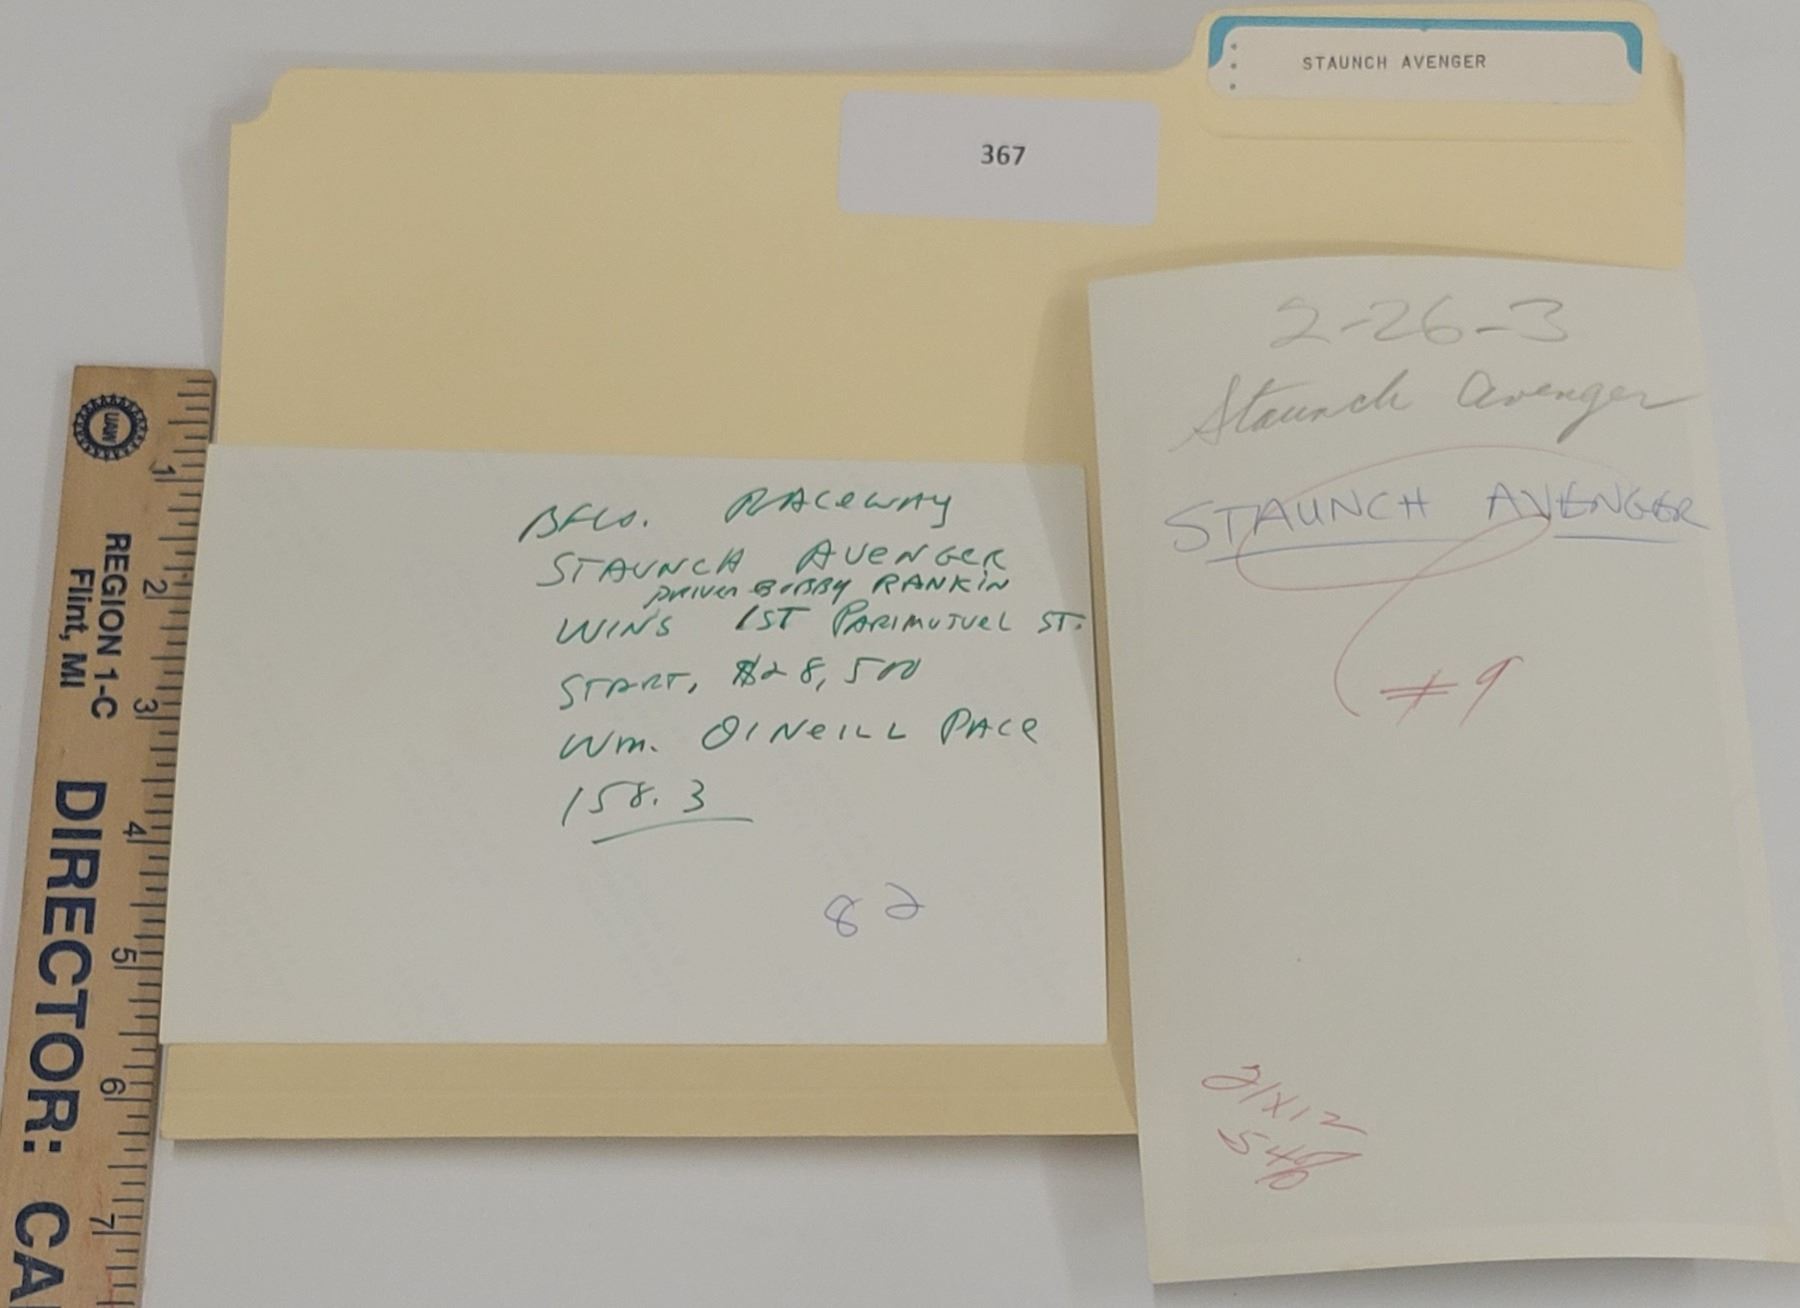 STAUNCH AVENGER
367
2-26-3
Staunch Avenger
STAUNCH AVENGER
#9
21x12
BFLO. RACEWAY
STAUNCH AVENGER
DRIVER BOBBY RANKIN
WINS 1ST PARIMUTUEL ST.
START, $28,500
Wm. O'NEILL PACE
158.3
82
UAW
REGION 1-C
Flint, MI
DIRECTOR: CA
1
2
3
4
5
6
7